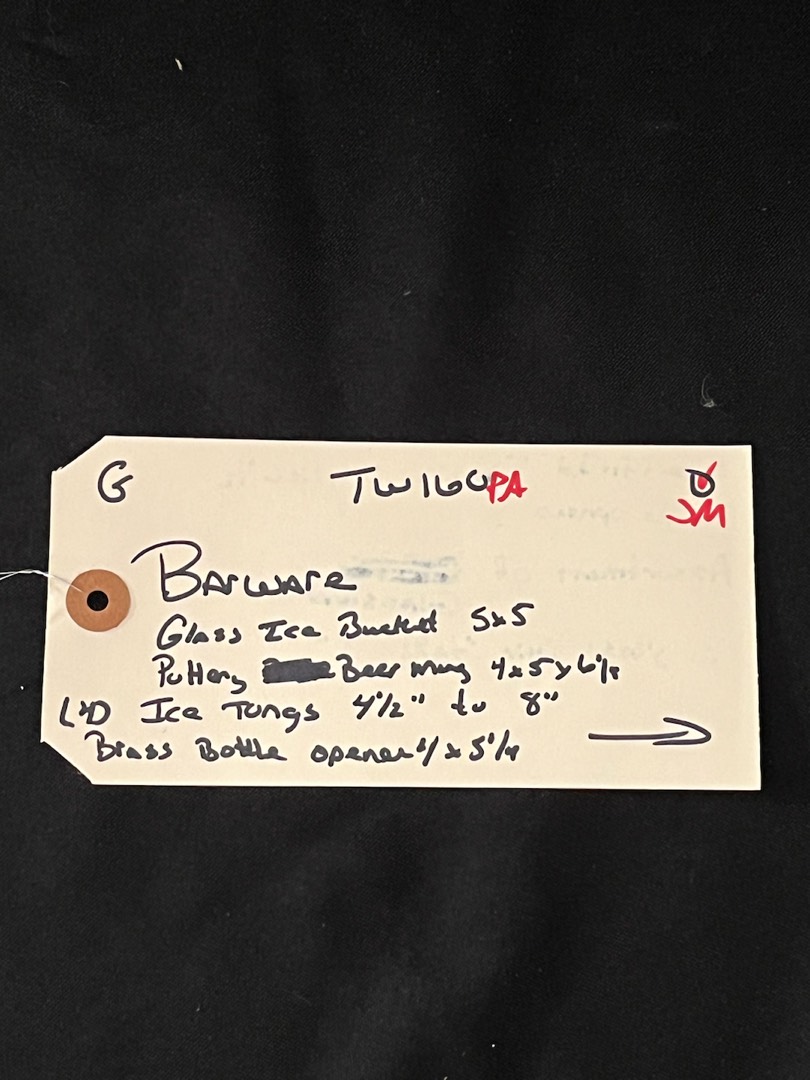 G TW160PA D
JM
Barware
Glass Ice Bucket 5x5
Pottery Beer Mug 4x5x6
Ice Tongs 4 1/2" to 8"
Brass Bottle opener x 5 1/4